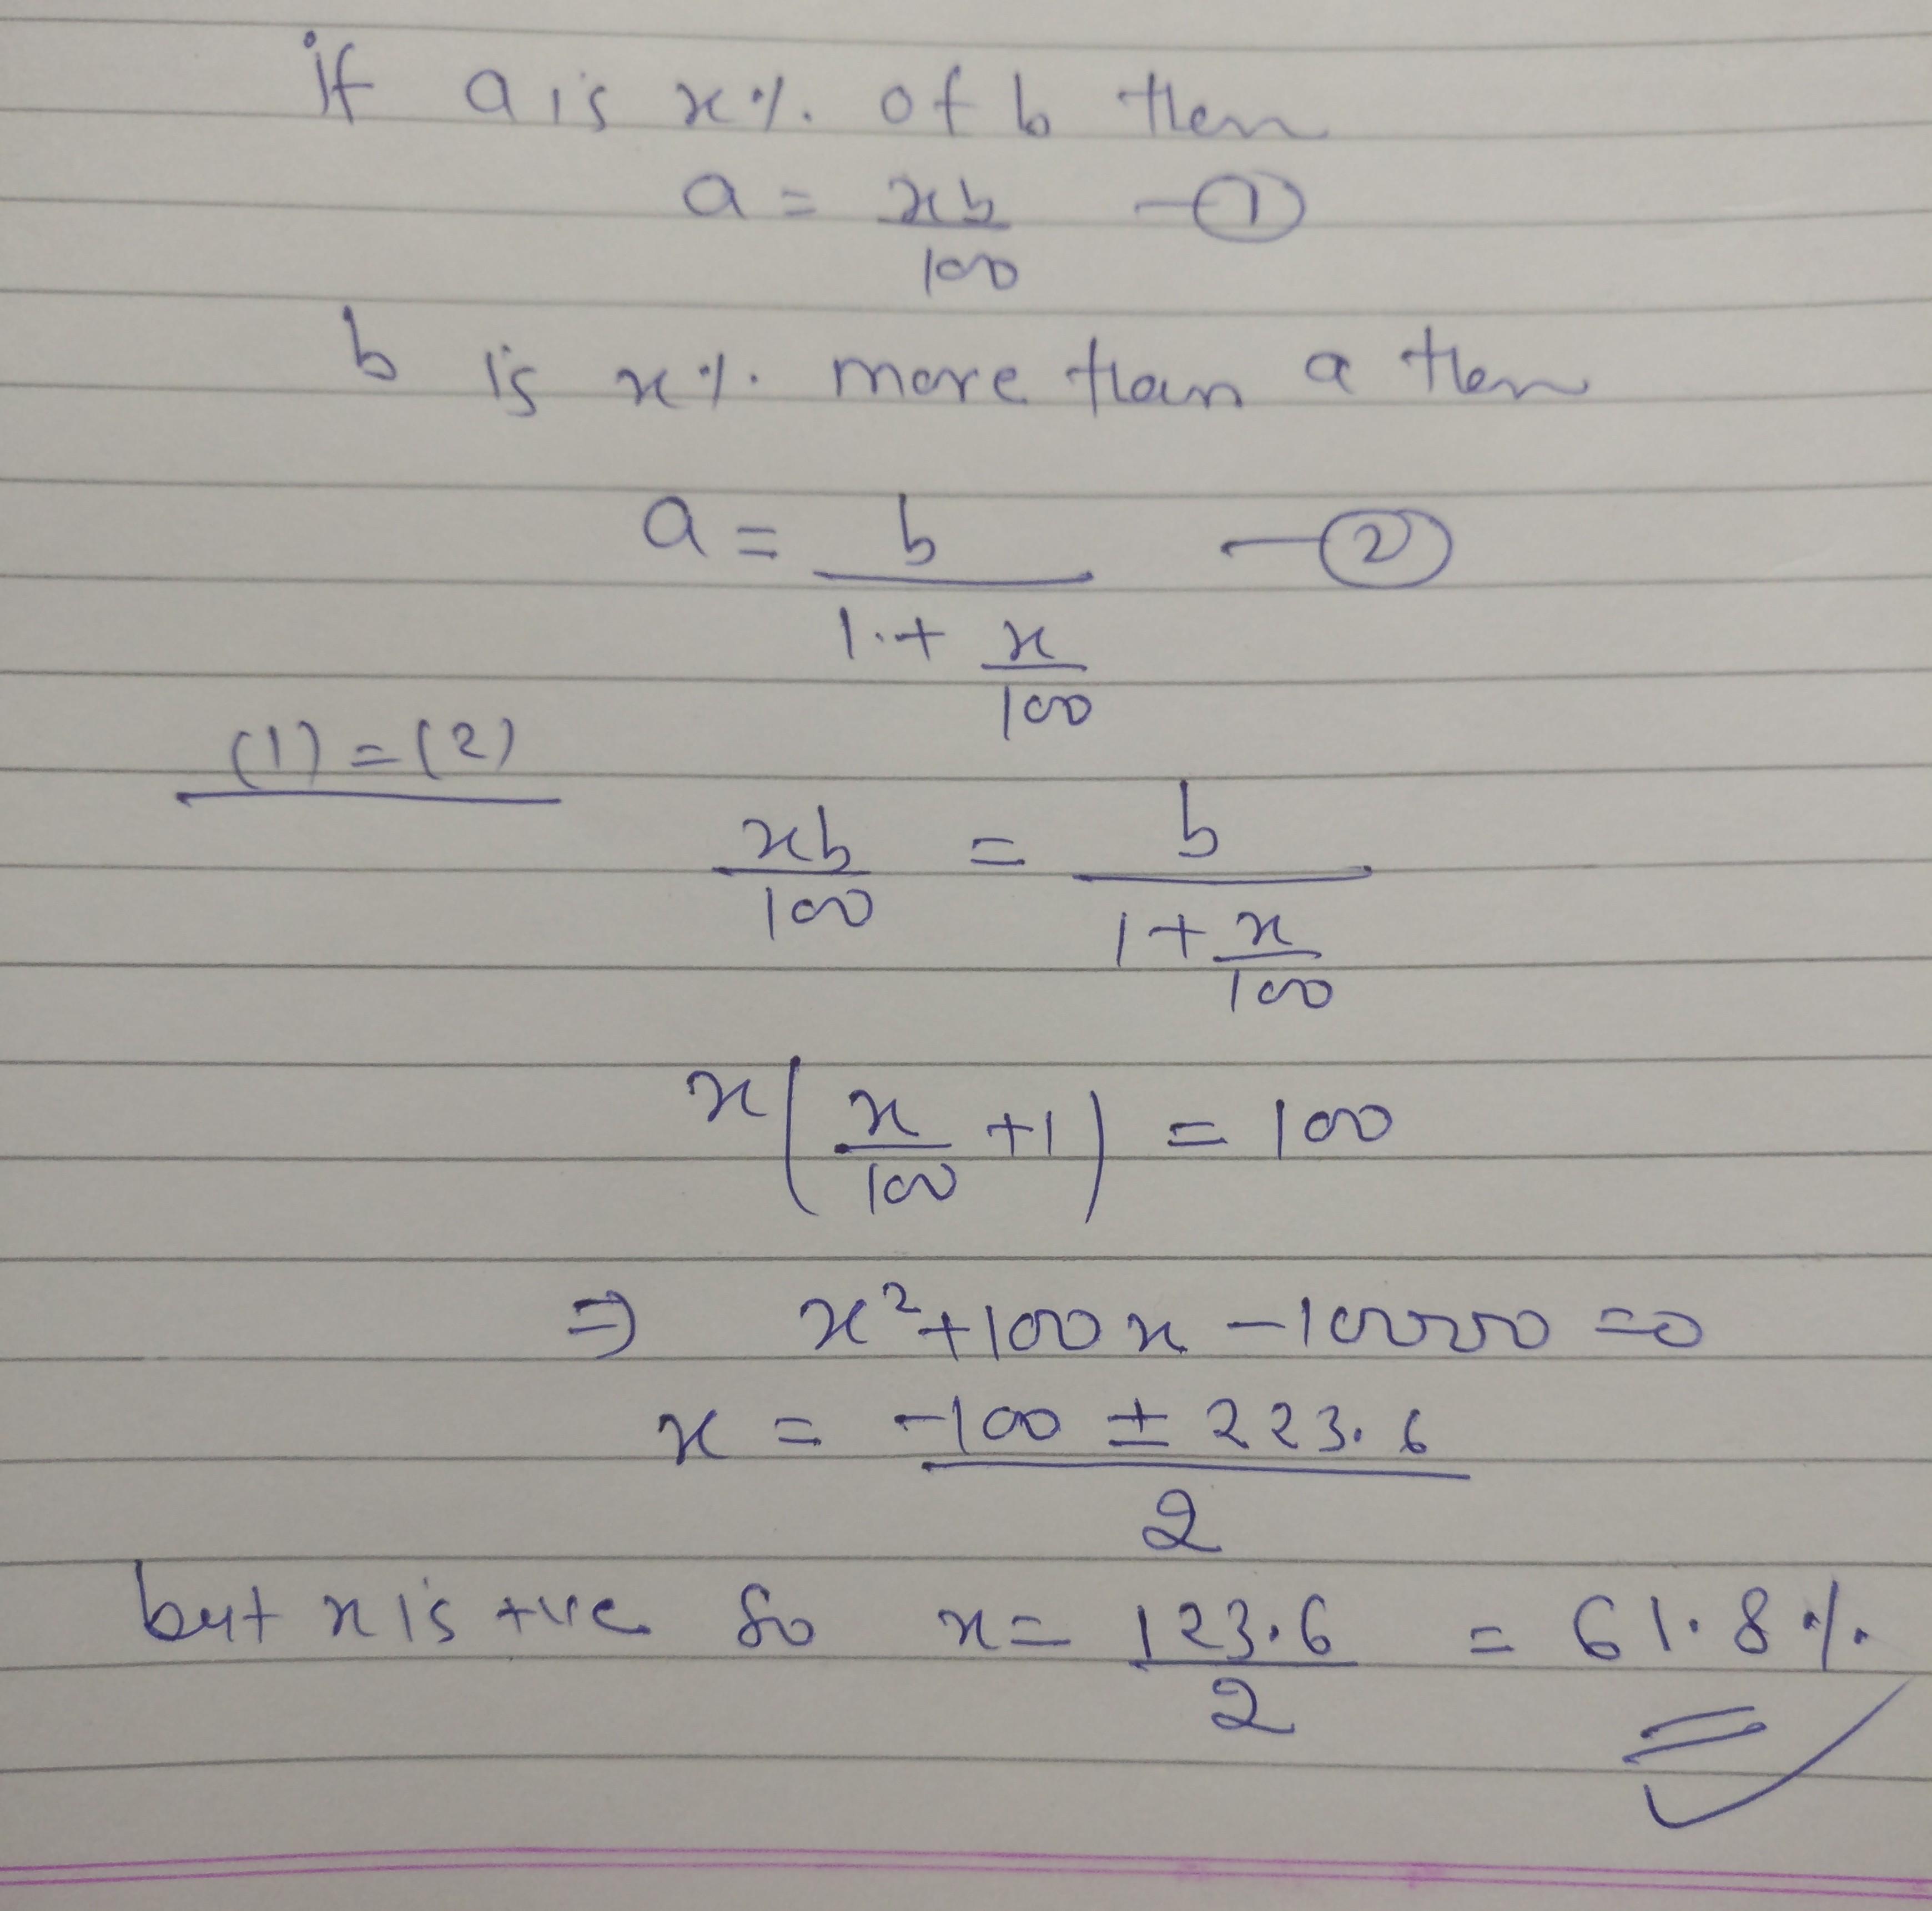 if a is x% of b then
a = xb/100 —①
b is x% more than a then
a = b/(1 + x/100) —②
(1) = (2)
xb/100 = b/(1 + x/100)
x(x/100 + 1) = 100
⇒ x² + 100x - 10000 = 0
x = (-100 ± 223.6)/2
but x is +ve so x = 123.6/2 = 61.8%